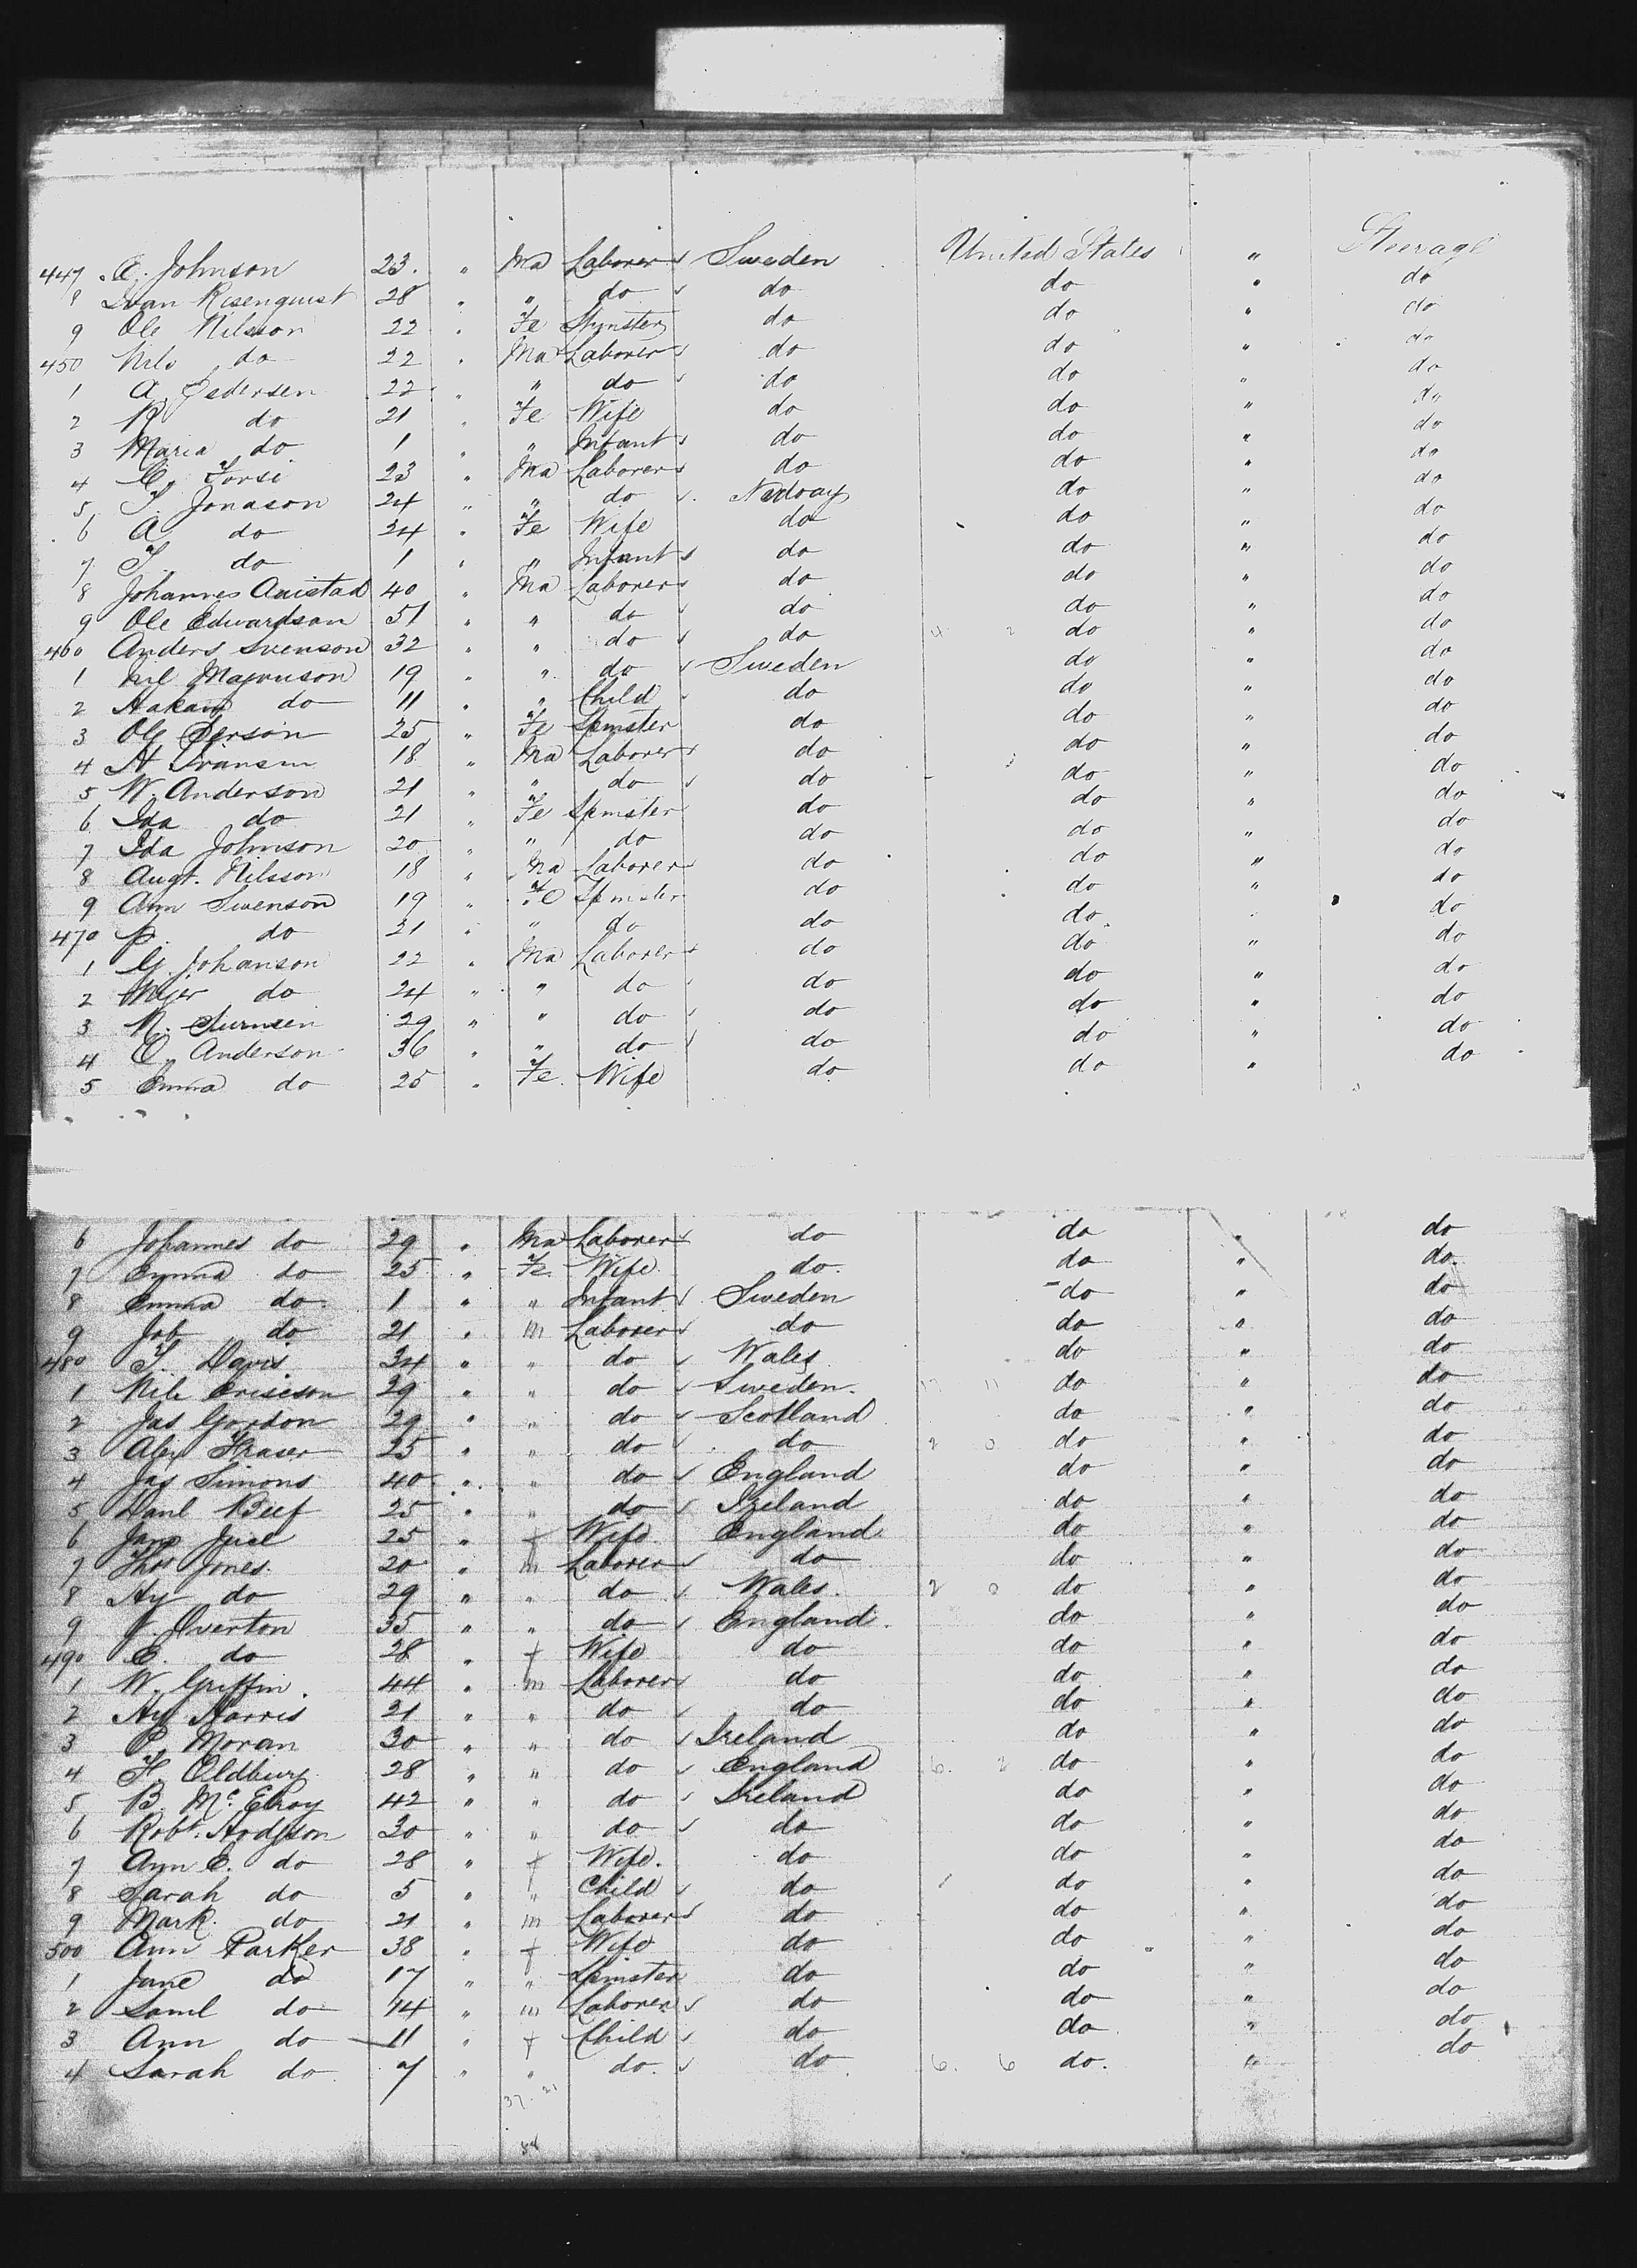 447 C. Johnson 23 " Ma Laborer Sweden United States " Steerage
8 Ivan Rosenquist 28 " " do do do " do
9 Ole Nilsson 22 " Fe Spinster do do " do
450 Nils do 22 " Ma Laborer do do " do
1 A. Pedersen 22 " " do do do " do
2 K do 21 " Fe Wife do do " do
3 Maria do 1 " " Infant do do " do
4 C. Forsi 23 " Ma Laborer do do " do
5 T. Jonason 24 " " do Norway do " do
6 A do 24 " Fe Wife do do " do
7 T. do 1 " " Infant do do " do
8 Johannes 40 " Ma Laborer do do " do
9 Ole Edwardson 51 " " do do do " do
460 Anders Svenson 32 " " do do 4 2 do " do
1 Nil Magnuson 19 " " do Sweden do " do
2 Hakan do 11 " " Child do do " do
3 Ole Person 25 " Fe Spinster do do " do
4 H 18 " Ma Laborer do do " do
5 W. Anderson 21 " " do do do " do
6 Ida do 21 " Fe Spinster do do " do
7 Ida Johnson 20 " " do do do " do
8 Augt. Nilsson 18 " Ma Laborer do do " do
9 Ann Swenson 19 " Fe Spinster do do " do
470 P. do 21 " " do do do do
1 G. Johanson 22 " Ma Laborer do do " do
2 do 24 " " do do do " do
3 N. 29 " " do do do " do
4 O. Anderson 36 " " do do do " do
5 Emma do 25 " Fe. Wife do do " do
6 Johannes do 29 " Ma Laborer do do " do
7 Emma do 25 " Fe. Wife do. do " do.
8 Emma do 1 " " Infant Sweden do " do
9 Job do 21 " m Laborer do do " do
480 T. Davis 34 " " do Wales do " do
1 Nils Ericson 29 " " do Sweden. 17 11 do " do
2 Jas Gordon 29 " " do Scotland do " do
3 Alex Fraser 25 " " do do 2 0 do " do
4 Jas Simons 40 " " do England do " do
5 Danl Beef 25 " " do Ireland do " do
6 Jane 25 " f Wife England do " do
7 Thos Jones. 20 " m Laborer do do " do
8 Hy do 29 " " do Wales. 2 0 do " do
9 J. Overton 35 " " do England. do " do
490 E. do 28 " f Wife do do " do
1 W. Griffin 44 " m Laborer do do " do
2 Hy Harris 21 " " do do do " do
3 P. Moran 30 " " do Ireland do " do
4 F. Oldbury 28 " " do England 6. 2 do " do
5 B. McElroy 42 " " do Ireland do " do
6 Robt. Hodgson 30 " " do do do " do
7 Ann E. do 28 " f Wife. do do " do
8 Sarah do 5 " " Child do 1 do " do
9 Mark. do 21 " m Laborer do do " do
500 Ann Parker 38 " f Wife do do " do
1 Jane do 17 " " Spinster do do " do
2 Saml do 14 " m Laborer do do " do
3 Ann do 11 " f Child do do " do
4 Sarah do 7 " " do. do 6. 6 do. " do
37. 21
58